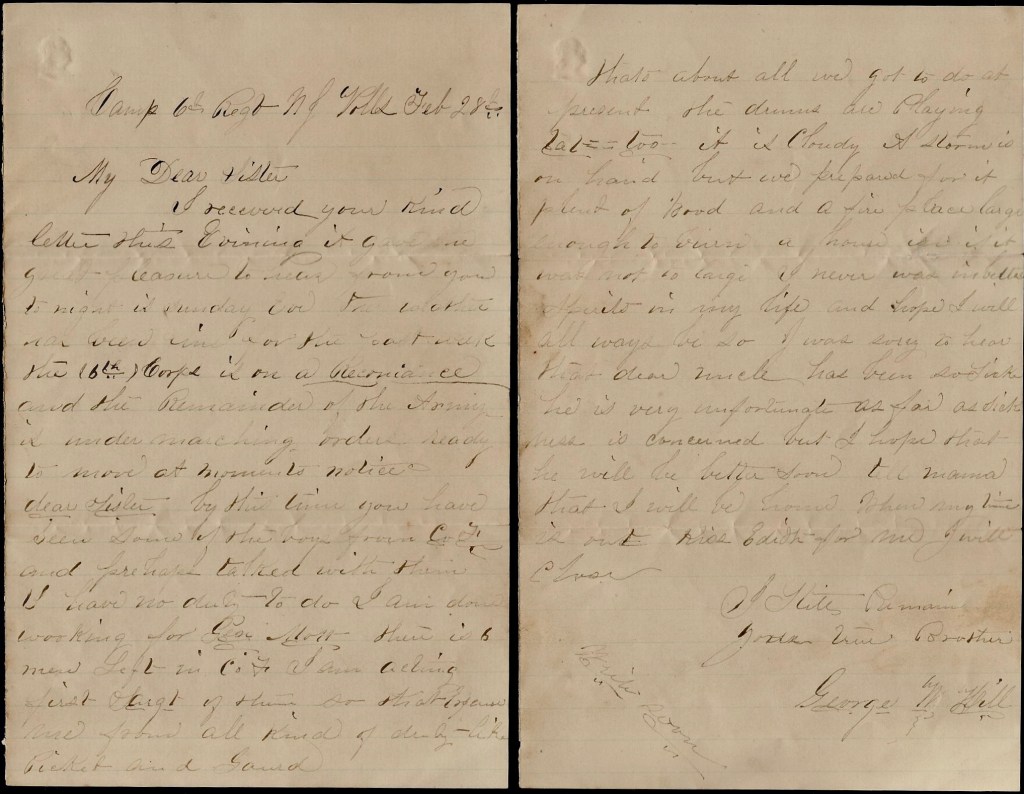 Camp 6th Regt N J Volls Feb 28th
My Dear Sister
I received your kind
letter this Evining it gave me
great pleasure to hear from you
to night is sunday Eve the weather
has been fine for the past week
the (6th) Corps is on a Reconiance
and the Remainder of the Army
is under marching orders ready
to move at moments notice
dear Sister by this time you have
seen some of the boys from Co F
and prehaps talked with them
I have no duty to do I am done
working for Gen Mott their is 6
men Left in Co F I am acting
first Sargt of them so that Excuse
me from all kind of duty like
Picket and Gaurd
thats about all we got to do at
present the drums are Playing
tat==too it is Cloudy A storm is
on hand but we prepared for it
plent of Wood and a fire place large
enough to burn a house if it
was not so large I never was in better
spirits in my life and hope I will
all ways be so I was sory to hear
that dear uncle has been so sick
he is very unfortunate as far as sick
ness is concerned but I hope that
he will be better soon tell mama
that I will be home When my time
is out Kiss Edith for me I will
Close
I Still Remain
Your true Brother
George W Hill
Write Soon